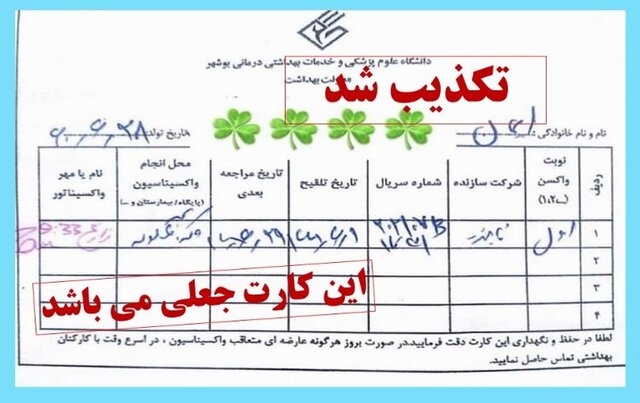 دانشگاه علوم پزشکی و خدمات بهداشتی درمانی بوشهر
معاونت بهداشت
تکذیب شد
نام و نام خانوادگی:
تاریخ تولد:
ردیف
نوبت واکسن (۱،۲و...)
شرکت سازنده
شماره سریال
تاریخ تلقیح
تاریخ مراجعه بعدی
محل انجام واکسیناسیون (پایگاه/ بیمارستان و ...)
نام یا مهر واکسیناتور
۱ اول
۲
۳
۴
این کارت جعلی می باشد
لطفا در حفظ و نگهداری این کارت دقت فرمایید،در صورت بروز هرگونه عارضه ای متعاقب واکسیناسیون ، در اسرع وقت با کارکنان
بهداشتی تماس حاصل نمایید.